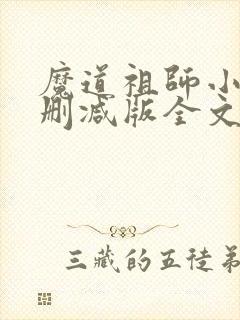 魔道祖师小
删减版全文
三藏的五徒弟